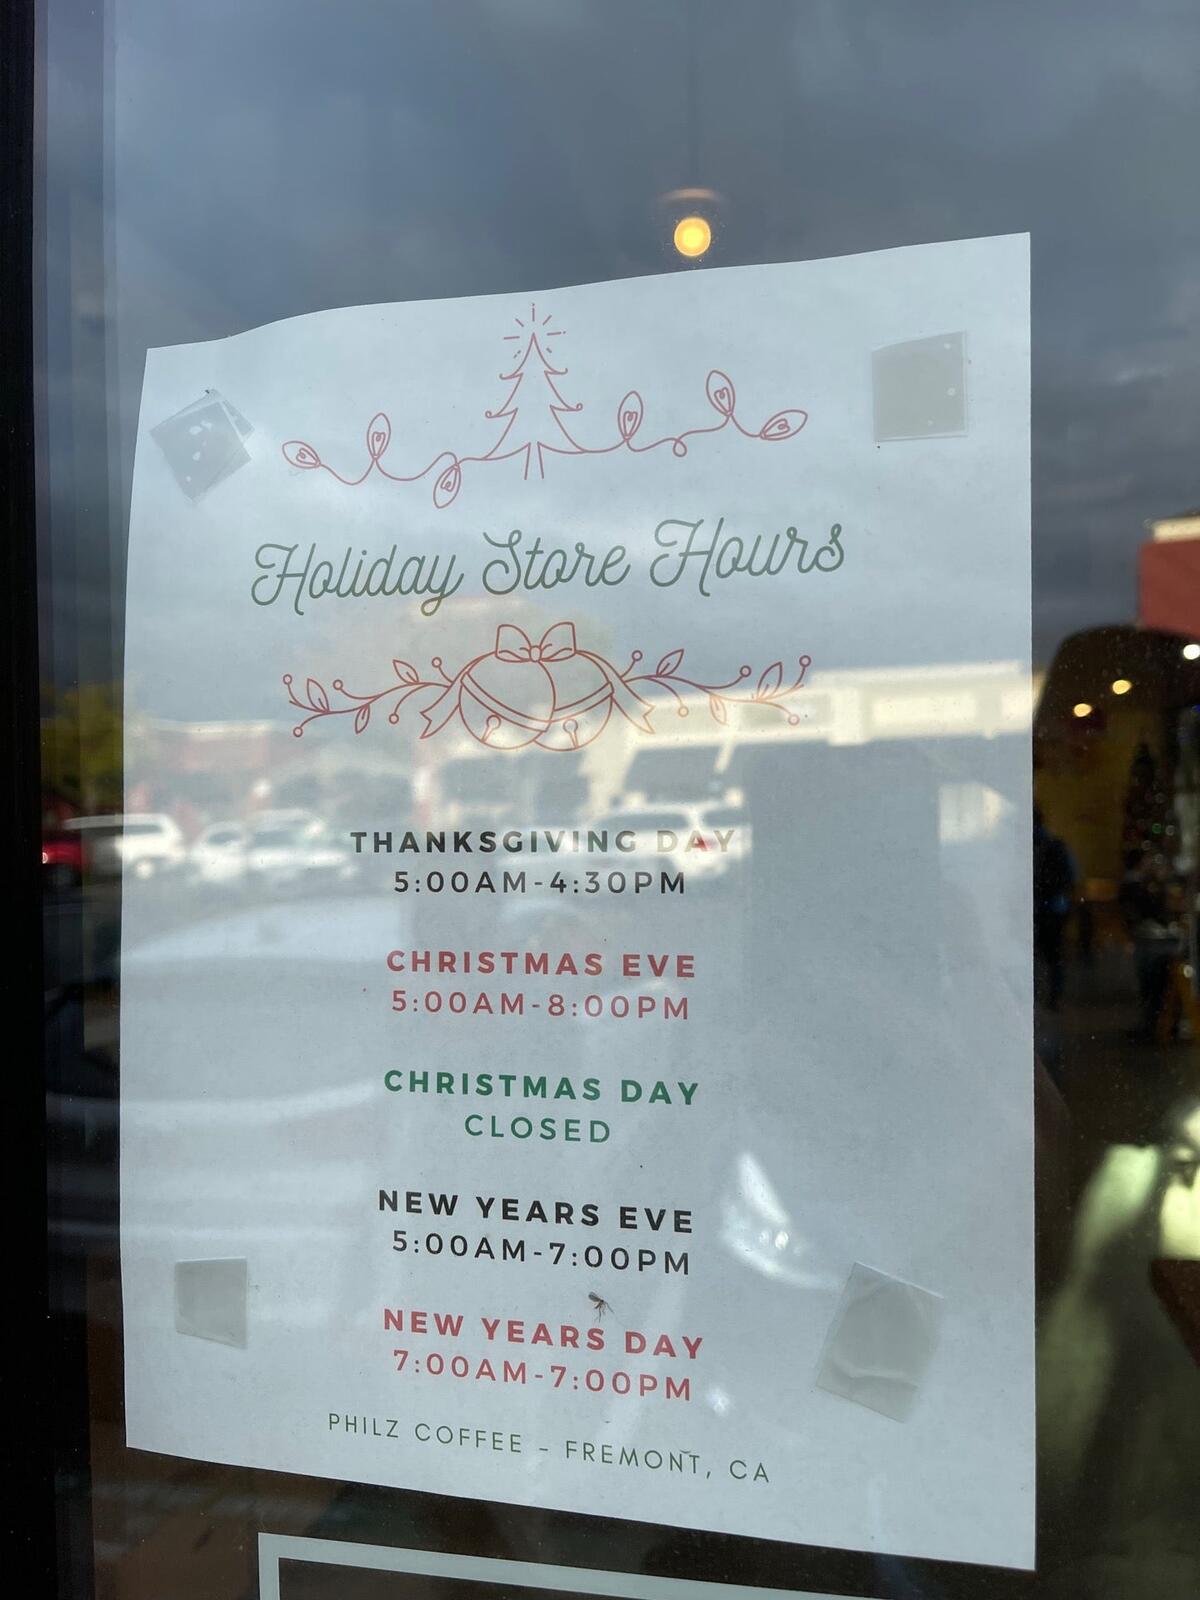 Holiday Store Hours
THANKSGIVING DAY
5:00AM-4:30PM
CHRISTMAS EVE
5:00AM-8:00PM
CHRISTMAS DAY
CLOSED
NEW YEARS EVE
5:00AM-7:00PM
NEW YEARS DAY
7:00AM-7:00PM
PHILZ COFFEE - FREMONT, CA